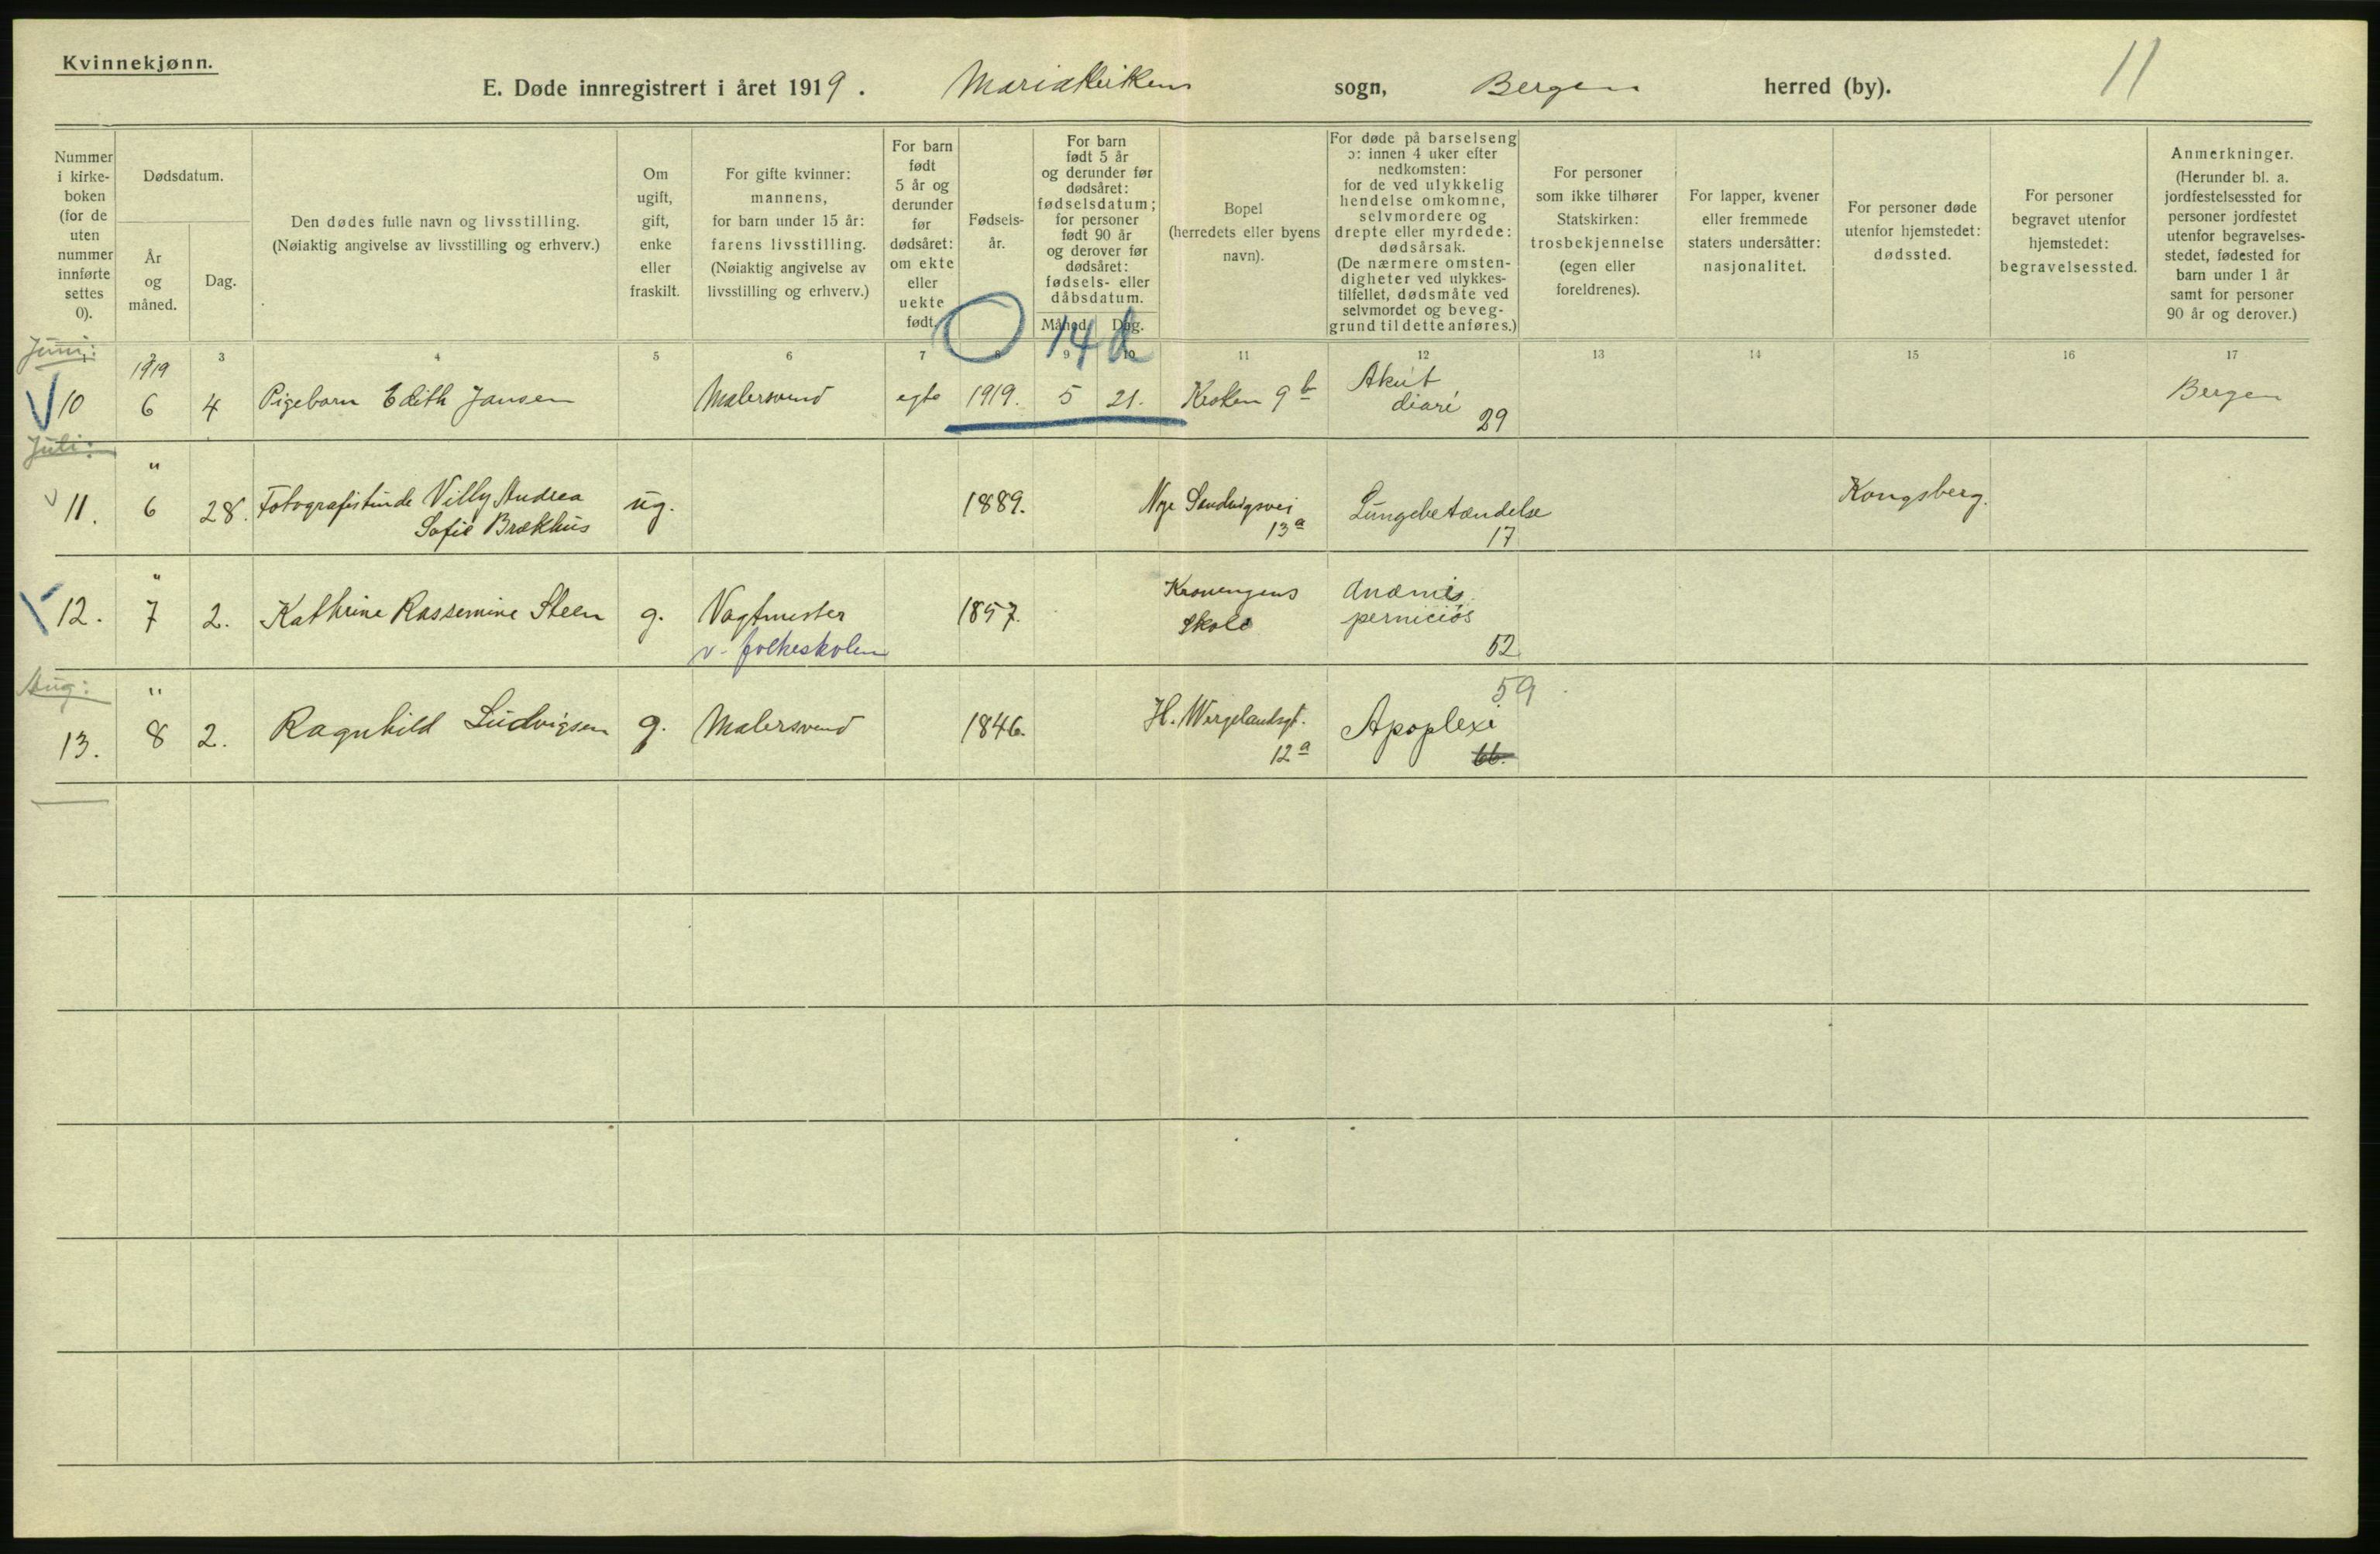 Kvinnekjønn.
E. Døde innregistrert i året 1919. Mariakirkens sogn, Bergen herred (by).
11
Nummer i kirke-boken (for de uten nummer innførte settes 0).
Dødsdatum.
År og måned.
Dag.
Den dødes fulle navn og livsstilling.
(Nøiaktig angivelse av livsstilling og erhverv.)
Om ugift, gift, enke eller fraskilt.
For gifte kvinner: mannens, for barn under 15 år: farens livsstilling. (Nøiaktig angivelse av livsstilling og erhverv.)
For barn født 5 år og derunder før dødsåret: om ekte eller uekte født.
Fødsels-år.
For barn født 5 år og derunder før dødsåret: fødselsdatum; for personer født 90 år og derover før dødsåret: fødsels- eller dåbsdatum.
Måned. Dag.
Bopel (herredets eller byens navn).
For døde på barselseng ɔ: innen 4 uker efter nedkomsten: for de ved ulykkelig hendelse omkomne, selvmordere og drepte eller myrdede: dødsårsak. (De nærmere omsten-digheter ved ulykkes-tilfellet, dødsmåte ved selvmordet og beveg-grund til dette anføres.)
For personer som ikke tilhører Statskirken: trosbekjennelse (egen eller foreldrenes).
For lapper, kvener eller fremmede staters undersåtter: nasjonalitet.
For personer døde utenfor hjemstedet: dødssted.
For personer begravet utenfor hjemstedet: begravelsessted.
Anmerkninger. (Herunder bl. a. jordfestelsessted for personer jordfestet utenfor begravelses-stedet, fødested for barn under 1 år samt for personer 90 år og derover.)
1 2 3 4 5 6 7 8 9 10 11 12 13 14 15 16 17
0 14 d
Juni:
1919
10 6 4 Pigebarn Edith Jansen Malersvend egte 1919. 5 21. Kroken 9 b Akut diaré 29 Bergen
Juli:
11. " 6 28. Fotografistinde Villy Andrea Sofie Brækhus ug. 1889. Nye Sandvigsvei 13 a Lungebetændelse 17 Kongsberg.
12. " 7 2. Kathrine Rassemine Steen g. Vagtmester v. folkeskolen 1857. Kronengens Skole Anæmia perniciøs 52
Aug:
13. " 8 2. Ragnhild Ludvigsen g. Malersvend 1846. H. Wergelandsgt. 12 a Apoplexi 59 66.